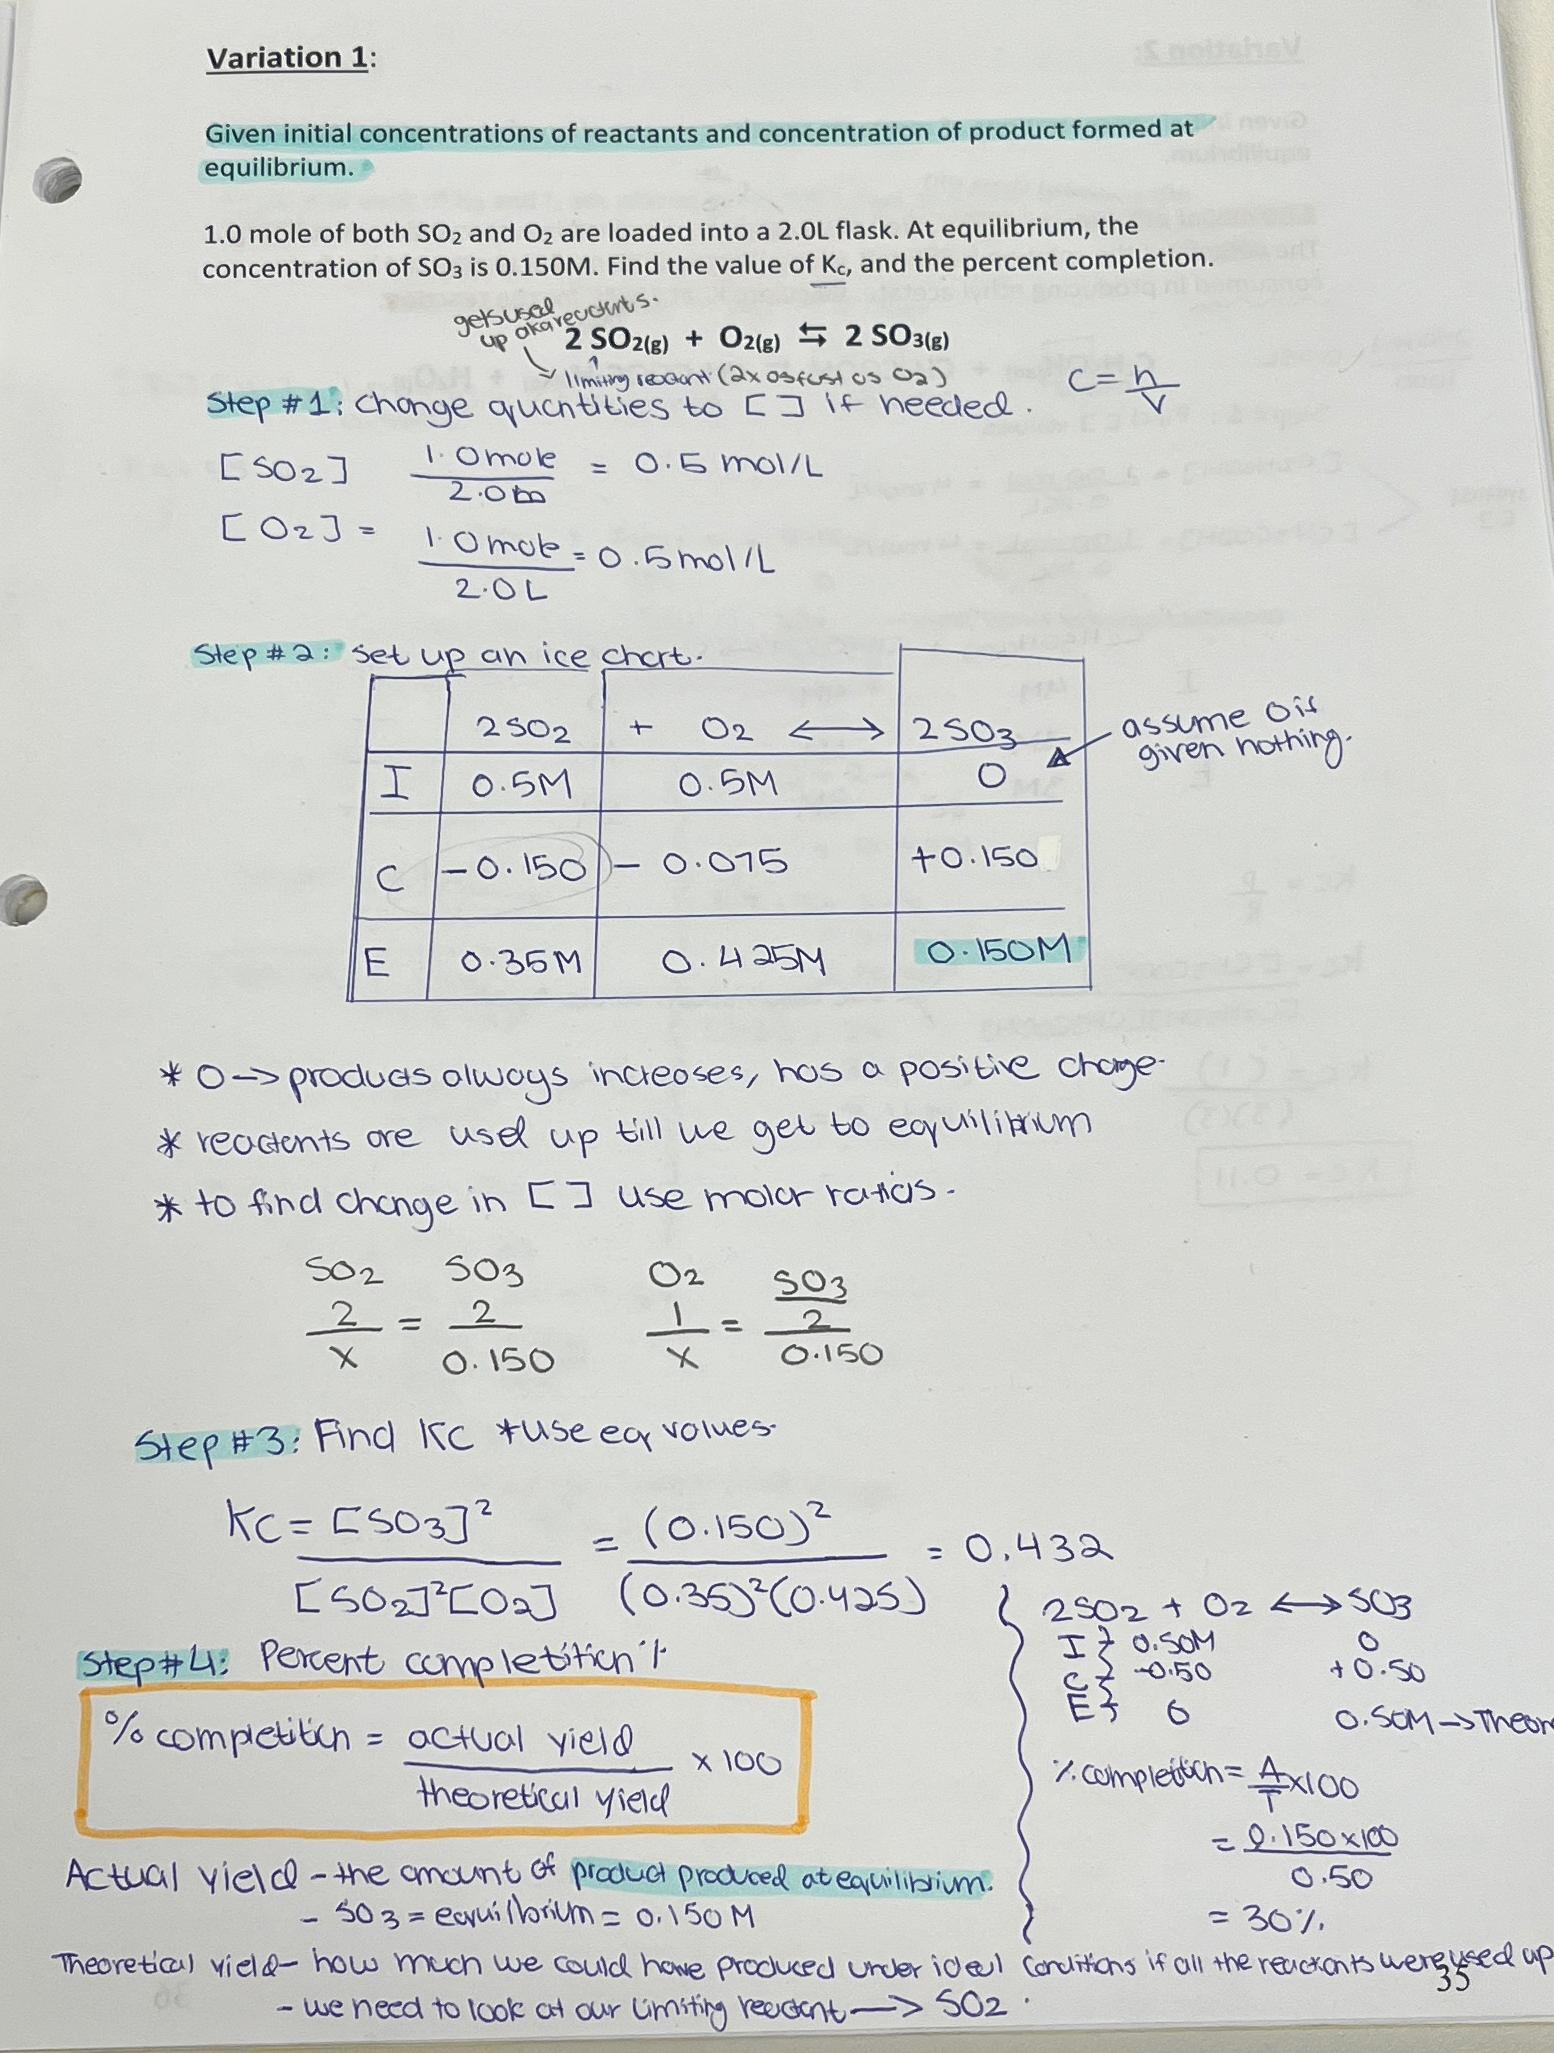 Variation 1:
Given initial concentrations of reactants and concentration of product formed at
equilibrium.
1.0 mole of both SO₂ and O₂ are loaded into a 2.0L flask. At equilibrium, the
concentration of SO₃ is 0.150M. Find the value of Kc, and the percent completion.
gets used
up aka reactants.
2 SO₂(g) + O₂(g) ⇆ 2 SO₃(g)
limiting reactant (2x as fast as O₂)
Step #1: change quantities to [ ] if needed. C = n/V
[SO₂] 1.0 mole / 2.0 = 0.5 mol/L
[O₂] = 1.0 mole / 2.0 L = 0.5 mol/L
Step #2: set up an ice chart.
2SO₂ + O₂ ⟷ 2SO₃
assume 0 if
given nothing.
I 0.5M 0.5M 0
C -0.150 - 0.075 +0.150
E 0.35M 0.425M 0.150M
* 0 -> products always increases, has a positive change.
* reactants are used up till we get to equilibrium
* to find change in [ ] use molar ratios.
SO₂ SO₃ O₂ SO₃
2/x = 2/0.150 1/x = 2/0.150
Step #3: Find Kc *use eq values.
Kc = [SO₃]² / [SO₂]²[O₂] = (0.150)² / (0.35)²(0.425) = 0.432
Step #4: Percent completition %
% completition = actual yield / theoretical yield x 100
2SO₂ + O₂ ⟷ SO₃
I } 0.50M 0
C } -0.50 +0.50
E } 0 0.50M -> Theor
% completition = A/T x100
= 0.150 x 100 / 0.50
= 30%
Actual yield - the amount of product produced at equilibrium.
- SO₃ = equilibrium = 0.150 M
Theoretical yield - how much we could have produced under ideal conditions if all the reactants were used up
- we need to look at our limiting reactant -> SO₂.
35